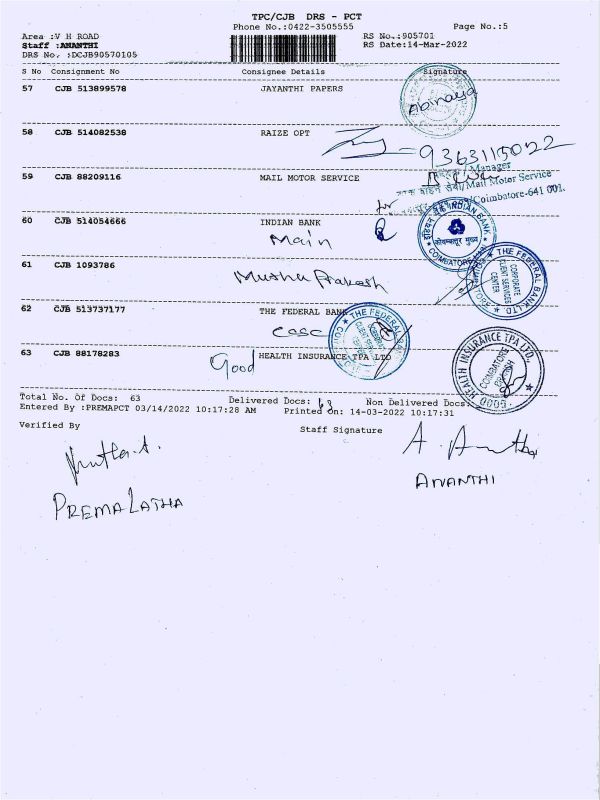 TPC/CJB DRS - PCT
Phone No.:0422-3505555 Page No.:5
Area :V H ROAD RS No.:905701
Staff :ANANTHI RS Date:14-Mar-2022
DRS No. :DCJB90570105
S No Consignment No Consignee Details Signature
57 CJB 513899578 JAYANTHI PAPERS
Abinaya
58 CJB 514082538 RAIZE OPT
9363115022
Manager
59 CJB 88209116 MAIL MOTOR SERVICE
Mail Motor Service
for Coimbatore-641 001.
60 CJB 514054666 INDIAN BANK
Main
INDIAN BANK
COIMBATORE
61 CJB 1093786
THE FEDERAL BANK LTD.
CORPORATE
CLIENT SERVICES
CENTER
62 CJB 513737177 THE FEDERAL BANK
THE FEDERAL
63 CJB 88178283 Good HEALTH INSURANCE TPA LTD
GOOD HEALTH INSURANCE TPA LTD.,
COIMBATORE
Total No. Of Docs: 63 Delivered Docs: 63 Non Delivered Docs:
Entered By :PREMAPCT 03/14/2022 10:17:28 AM Printed On: 14-03-2022 10:17:31
Verified By Staff Signature
PREMALATHA
ANANTHI